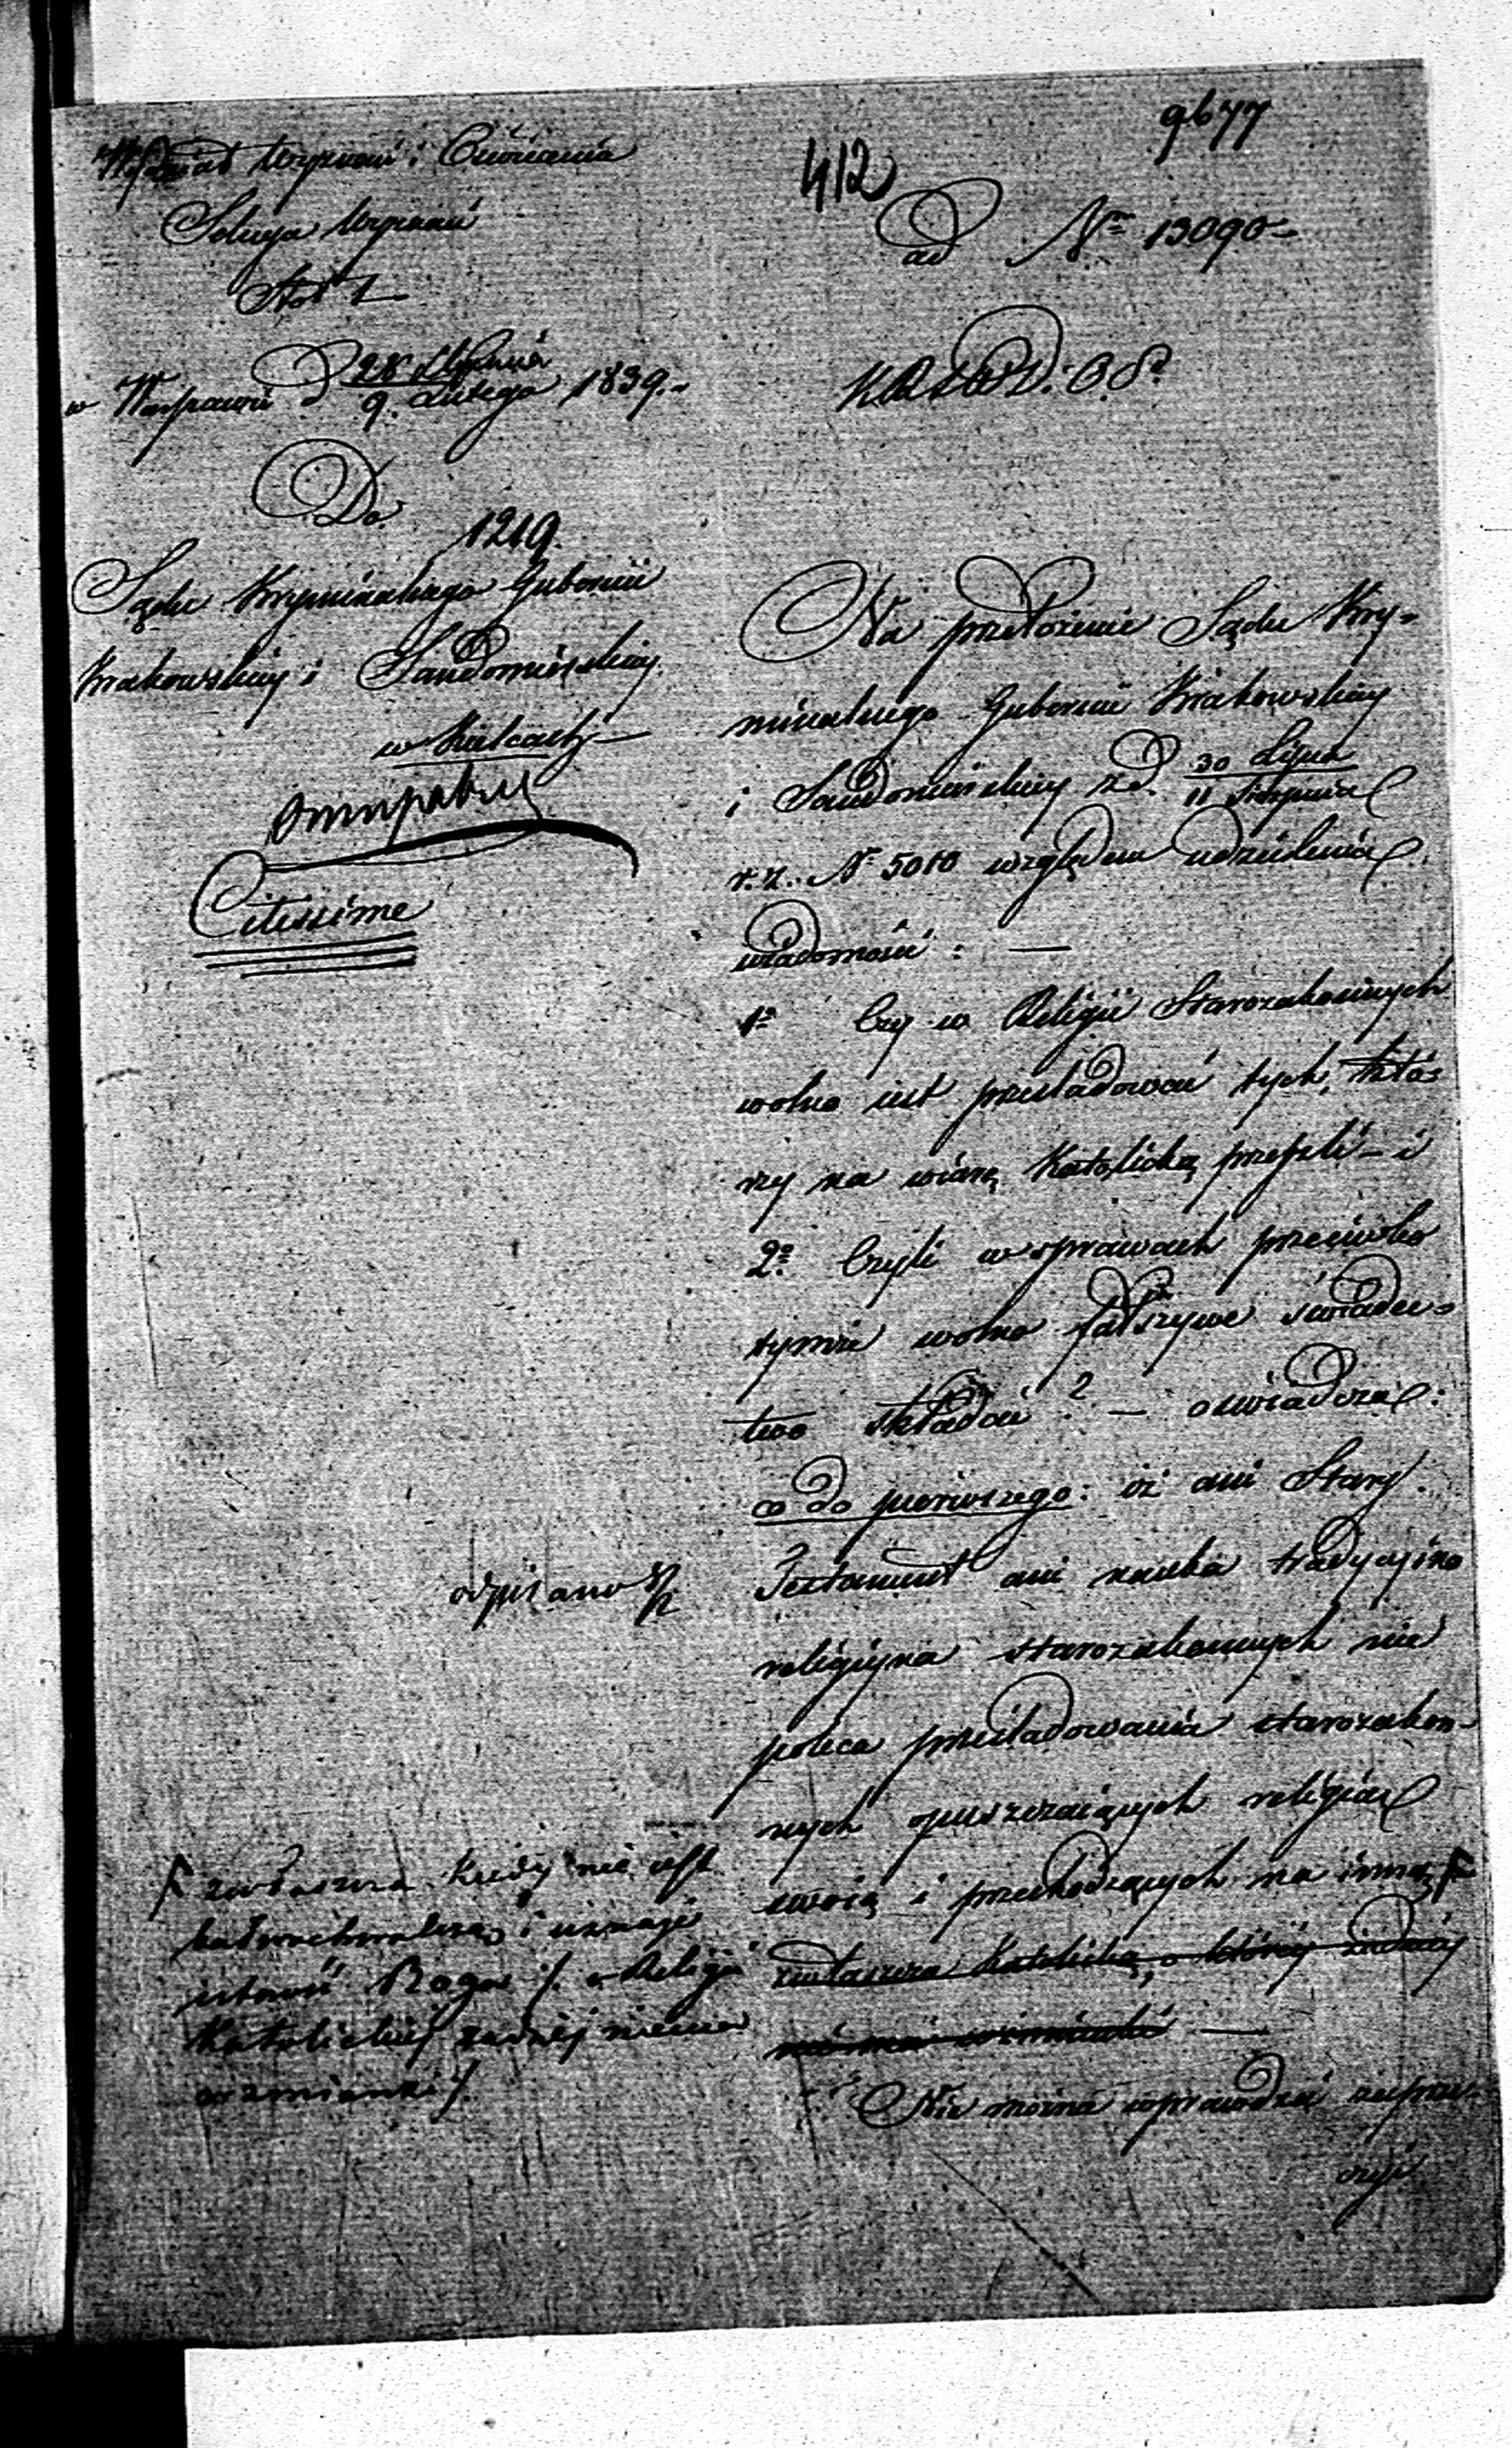 9677
412
Wydział Wyznań i Oświecenia
Sekcya Wyznań
ad Nro 13090
w Warszawie d 28 Stycznia
9. Lutego 1839.
K.R.S.W.D. i O.P.
Do
1219.
Sądu Kryminalnego Gubernii
Krakowskiey i Sandomirskiey
w Kielcach
Citissime
Na przełożenie Sądu Kry-
minalnego Gubernii Krakowskiey
i Sandomirskiey z d. 30 Lipca
11 Sierpnia
r. z. No 5010 względem udzielenia
wiadomości: —
1o Czy w Religii Starozakonnych
wolno iest prześladować tych, któ-
rzy na wiarę Katolicką przeszli – i
2o. Czyli w sprawach przeciwko
tymże wolno fałszywe świadec-
two składać? — oświadcza:
co do pierwszego: iż ani Stary
Testament ani nauka tradycyjna
odpisano
religijna starozakonnych nie
poleca prześladowania starozakon-
nych opuszczaiących religią
swoią i przechodzących na inną F
zwłaszcza Katolicką, o któréy żadnéy
nie ma wzmianki —
F zwłaszcza kiedy nie jest
bałwochwalczą i uznaje
istność Boga /. o Religii
Katolickiéj żadnéj niema
wzmianki /.
Nie można wprawdzie zaprze-
czyć